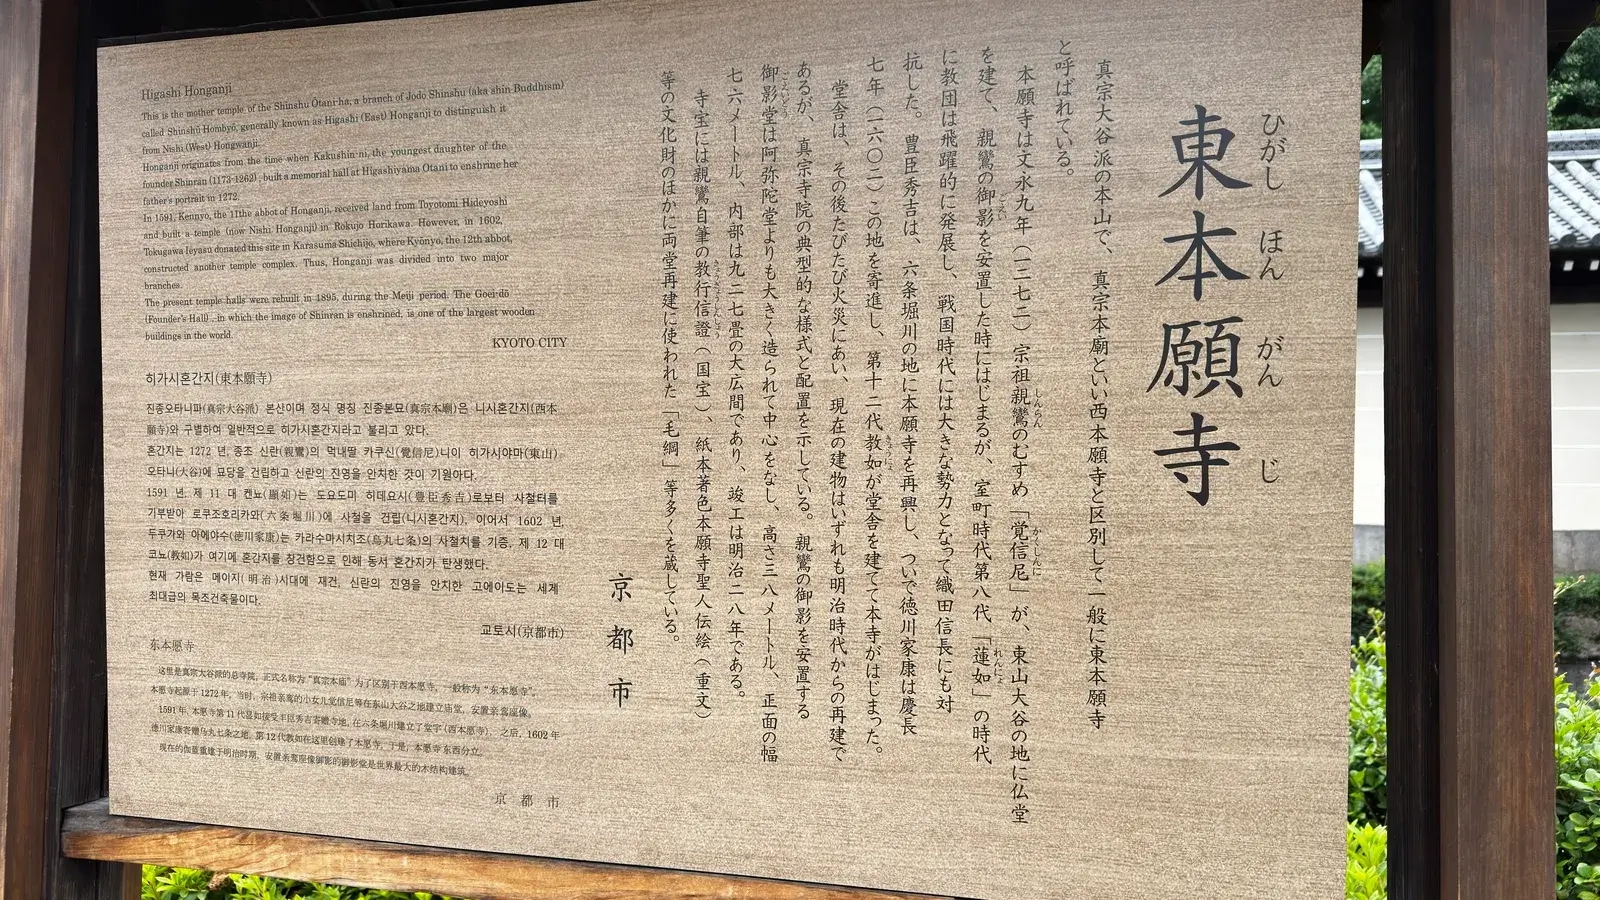 東本願寺
ひがし ほん がん じ
真宗大谷派の本山で、真宗本廟といい西本願寺と区別して一般に東本願寺
と呼ばれている。
本願寺は文永九年（一二七二）宗祖親鸞のむすめ「覚信尼」が、東山大谷の地に仏堂
しんらん かくしんに
を建て、親鸞の御影を安置した時にはじまるが、室町時代第八代「蓮如」の時代
ごえい れんにょ
に教団は飛躍的に発展し、戦国時代には大きな勢力となって織田信長にも対
抗した。豊臣秀吉は、六条堀川の地に本願寺を再興し、ついで徳川家康は慶長
七年（一六〇二）この地を寄進し、第十二代教如が堂舎を建てて本寺がはじまった。
きょうにょ
堂舎は、その後たびたび火災にあい、現在の建物はいずれも明治時代からの再建で
あるが、真宗寺院の典型的な様式と配置を示している。親鸞の御影を安置する
御影堂は阿弥陀堂よりも大きく造られて中心をなし、高さ三八メートル、正面の幅
ごえいどう
七六メートル、内部は九二七畳の大広間であり、竣工は明治二八年である。
寺宝には親鸞自筆の教行信證（国宝）、紙本著色本願寺聖人伝絵（重文）
きょうぎょうしんしょう
等の文化財のほかに両堂再建に使われた「毛綱」等多くを蔵している。
京都市
Higashi Honganji
This is the mother temple of the Shinshu Ōtani-ha, a branch of Jodo Shinshu (aka shin Buddhism)
called Shinshū Hombyō, generally known as Higashi (East) Honganji to distinguish it
from Nishi (West) Hongwanji.
Honganji originates from the time when Kakushin-ni, the youngest daughter of the
founder Shinran (1173-1262), built a memorial hall at Higashiyama Otani to enshrine her
father's portrait in 1272.
In 1591, Kennyo, the 11the abbot of Honganji, received land from Toyotomi Hideyoshi
and built a temple (now Nishi Honganji) in Rokujo Horikawa. However, in 1602,
Tokugawa Ieyasu donated this site in Karasuma Shichijo, where Kyonyo, the 12th abbot,
constructed another temple complex. Thus, Honganji was divided into two major
branches.
The present temple halls were rebuilt in 1895, during the Meiji period. The Goei-dō
(Founder's Hall), in which the image of Shinran is enshrined, is one of the largest wooden
buildings in the world.
KYOTO CITY
히가시혼간지(東本願寺)
진종오타니파(真宗大谷派) 본산이며 정식 명칭 진종본묘(真宗本廟)은 니시혼간지(西本
願寺)와 구별하여 일반적으로 히가시혼간지라고 불리고 있다.
혼간지는 1272 년, 종조 신란(親鸞)의 막내딸 카쿠신(覚信尼)니이 히가시야마(東山)
오타니(大谷)에 묘당을 건립하고 신란의 진영을 안치한 것이 기원이다.
1591 년, 제 11 대 켄뇨(顕如)는 도요도미 히데요시(豊臣秀吉)로부터 사철터를
기부받아 로쿠조호리카와(六条堀川)에 사철을 건립(니시혼간지), 이어서 1602 년,
두쿠가와 아에야수(徳川家康)는 카라수마시치조(烏丸七条)의 사철치를 기증, 제 12 대
쿄뇨(教如)가 여기에 혼간지를 창건함으로 인해 동서 혼간지가 탄생했다.
현재 가람은 메이지(明治)시대에 재건, 신란의 진영을 안치한 고에이도는 세계
최대급의 목조건축물이다.
교토시(京都市)
东本愿寺
这里是真宗大谷派的总寺院，正式名称为“真宗本庙”为了区别于西本愿寺，一般称为“东本愿寺”。
本愿寺起源于1272年，当时，宗祖亲鸾的小女儿觉信尼等在东山大谷之地建立庙堂，安置亲鸾座像。
1591年，本愿寺第11代显如接受丰臣秀吉寄赠寺地，在六条堀川建立了堂宇（西本愿寺），之后，1602年
德川家康寄赠乌丸七条之地，第12代教如在这里创建了本愿寺，于是，本愿寺东西分立。
现在的伽蓝重建于明治时期，安置亲鸾座像御影的御影堂是世界最大的木结构建筑。
京都市